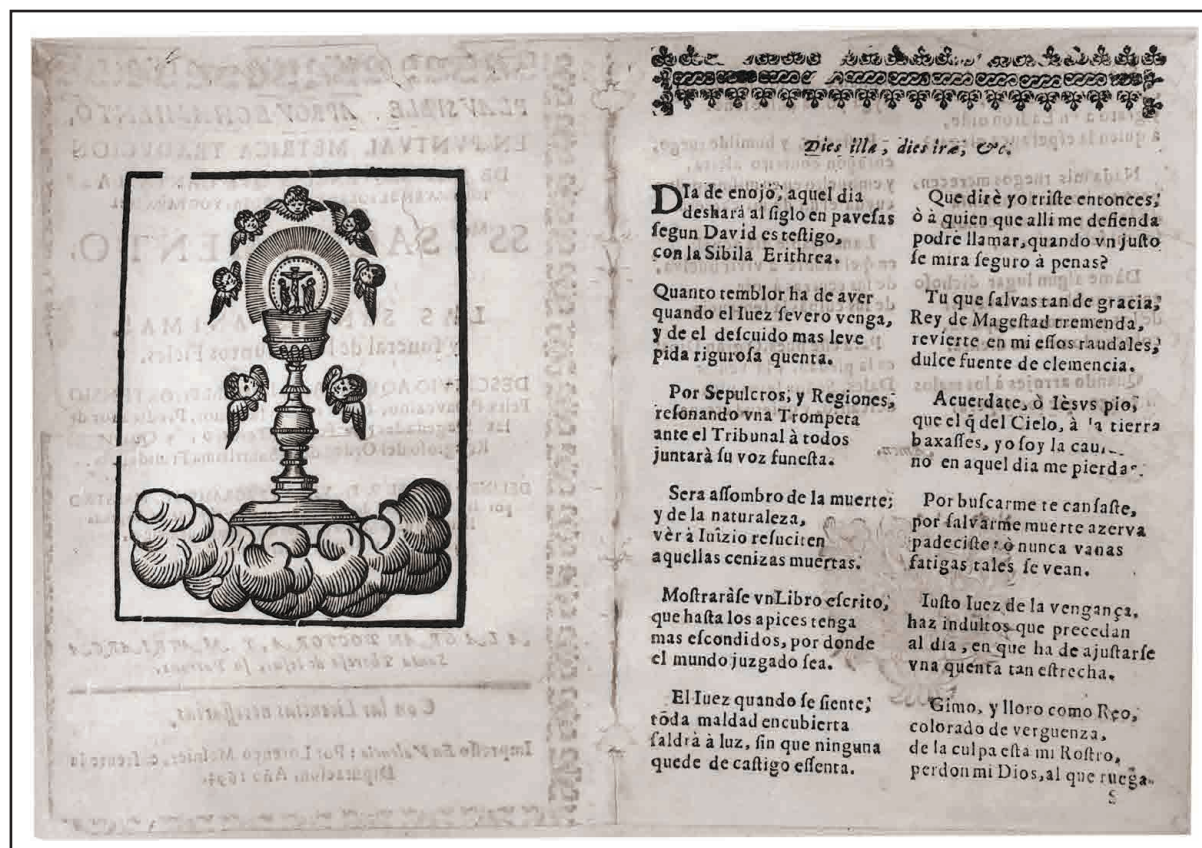 Dies illa, dies iræ, &c.
DIa de enojo, aquel dia
deshará al ſiglo en paveſas
ſegun David es teſtigo,
con la Sibila Erithrea.
Quanto temblor ha de aver
quando el Iuez ſevero venga,
y de el deſcuido mas leve
pida riguroſa quenta.
Por Sepulcros, y Regiones,
reſonando vna Trompeta
ante el Tribunal à todos
juntarà ſu voz funeſta.
Sera aſſombro de la muerte;
y de la naturaleza,
vèr à Iuîzio reſuciten
aquellas cenizas muertas.
Moſtraràſe vnLibro eſcrito,
que haſta los apices tenga
mas eſcondidos, por donde
el mundo juzgado ſea.
El Iuez quando ſe ſiente;
tòda maldad encubierta
ſaldrà à luz, ſin que ninguna
quede de caſtigo eſſenta.
Que dirè yo triſte entonces;
ò à quien que alli me defienda
podrè llamar, quando vn juſto
ſe mira ſeguro à penas?
Tu que ſalvas tan de gracia;
Rey de Mageſtad tremenda,
revierte en mi eſſos raudales;
dulce fuente de clemencia.
Acuerdate, ò Ièsvs pio;
que el q̃ del Cielo, à la tierra
baxaſſes, yo ſoy la
no en aquel dia me pierdas.
Por buſcarme te canſaſte,
por ſalvarme muerte azerva
padeciſte: ò nunca vanas
fatigas tales ſe vean.
Iuſto Iuez de la vengança,
haz indultos que precedan
al dia, en que ha de ajuſtarſe
vna quenta tan eſtrecha.
Gimo, y lloro como Reo,
colorado de verguenza,
de la culpa eſta mi Roſtro,
perdon mi Dios, al que ruega.
S